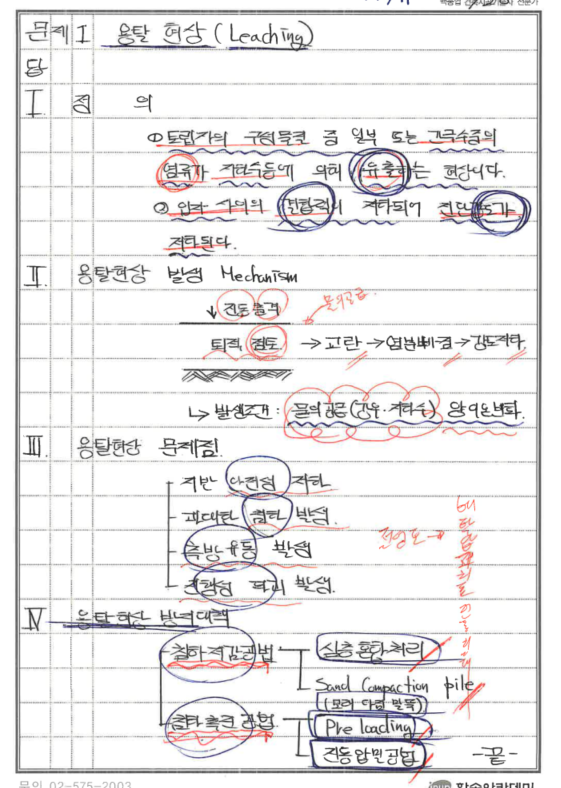 문제 I 용탈 현상 (Leaching)
답
I. 정 의
① 토립자의 구성물질 중 일부 또는 간극수중의
염류가 지하수등에 의해 유출하는 현상이다.
② 입자 사이의 결합력이 저하되어 전단강도가
저하된다.
II. 용탈현상 발생 Mechanism
↓ 진동충격
물의공급.
퇴적 점토 → 교란 → 염분빠짐 → 강도저하.
↳ 발생조건 : 물의공급(강우·지하수) 양이온변화.
III. 용탈현상 문제점.
지반 안전성 저하
과대한 침하 발생.
측방유동 발생
진행성 파괴 발생.
IV 용탈현상 방지대책
침하저감공법 심층혼합처리
Sand Compaction pile
(모래 다짐 말뚝)
침하촉진공법 Pre loading
진동압밀공법 -끝-
문의 02-575-2003 한솔아카데미